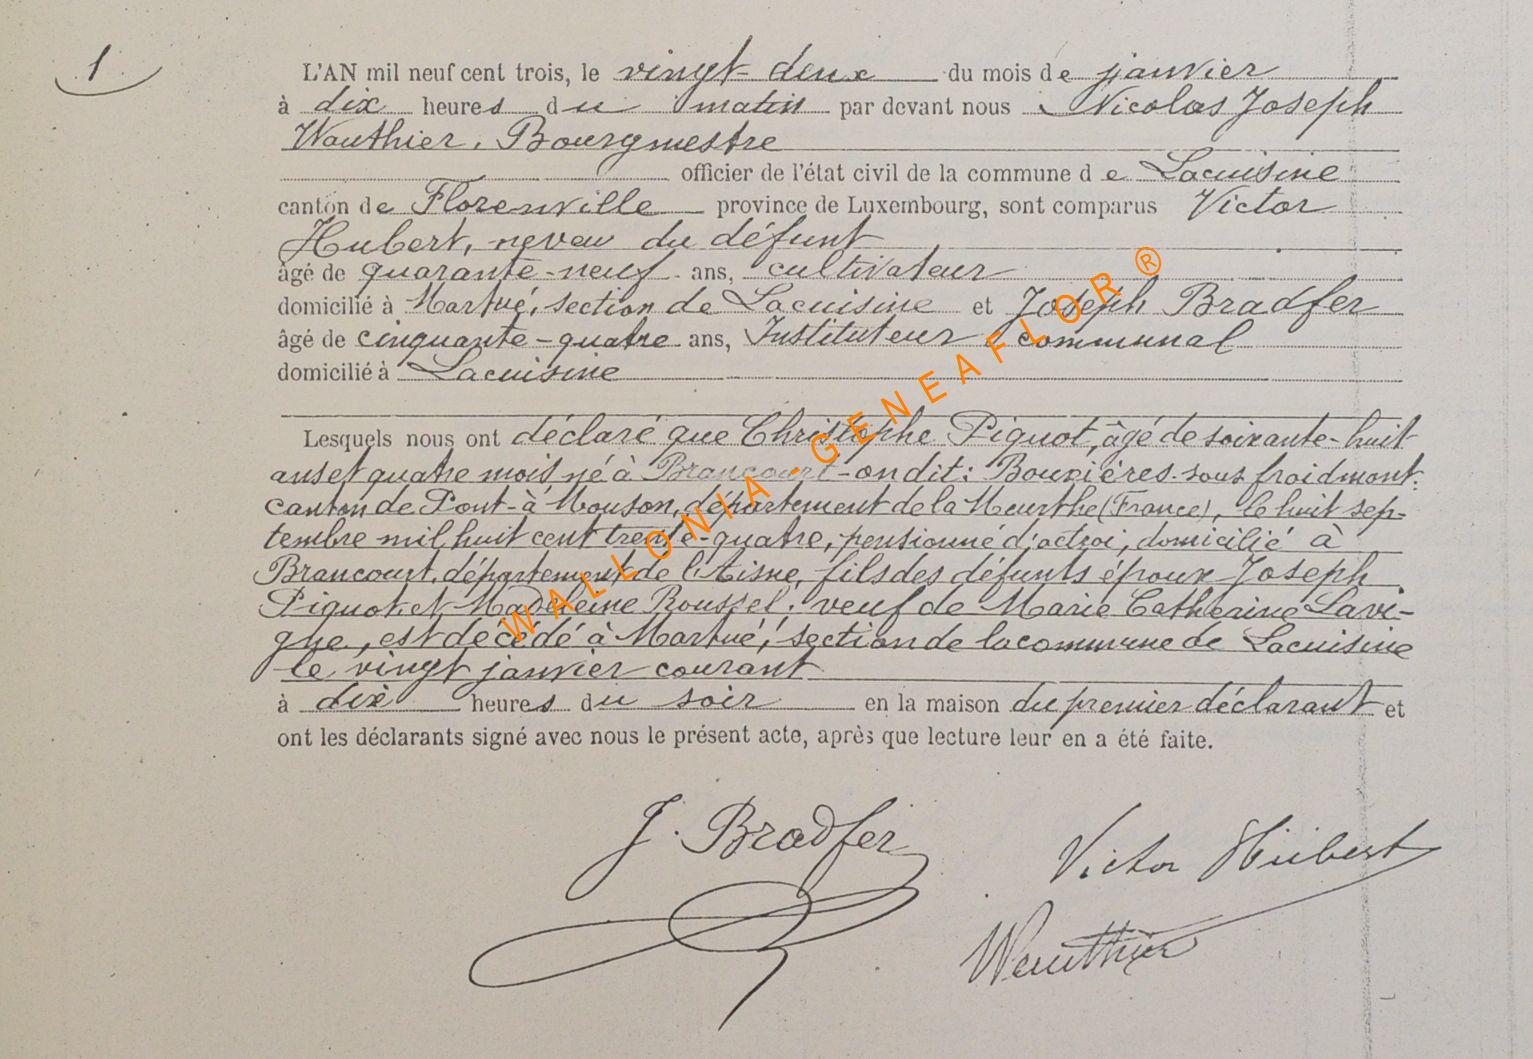 1
L'AN mil neuf cent trois, le vingt-deux du mois de janvier
à dix heures du matin par devant nous Nicolas Joseph
Wauthier, Bourgmestre
officier de l'état civil de la commune de Lacuisine
canton de Florenville province de Luxembourg, sont comparus Victor
Hubert, neveu du défunt
âgé de quarante-neuf ans, cultivateur
domicilié à Martué, section de Lacuisine et Joseph Bradfer
âgé de cinquante-quatre ans, Instituteur communal
domicilié à Lacuisine
Lesquels nous ont déclaré que Christophe Piquot, âgé de soixante-huit
ans et quatre mois, né à Brancourt - on dit: Bouxières-sous froidmont.
canton de Pont-à Mouson, département de la Meurthe (France), le huit sep-
tembre mil huit cent trente-quatre, pensionné d'octroi, domicilié à
Brancourt, département de l'Aisne, fils des défunts époux Joseph
Piquot et Madeleine Roussel; veuf de Marie Catherine Lavi-
gne, est décédé à Martué, section de la commune de Lacuisine
le vingt janvier courant
à dix heures du soir en la maison du premier déclarant et
ont les déclarants signé avec nous le présent acte, après que lecture leur en a été faite.
J. Bradfer
Victor Hubert
Wauthier
WALLONIA-GENEAFLOR ®